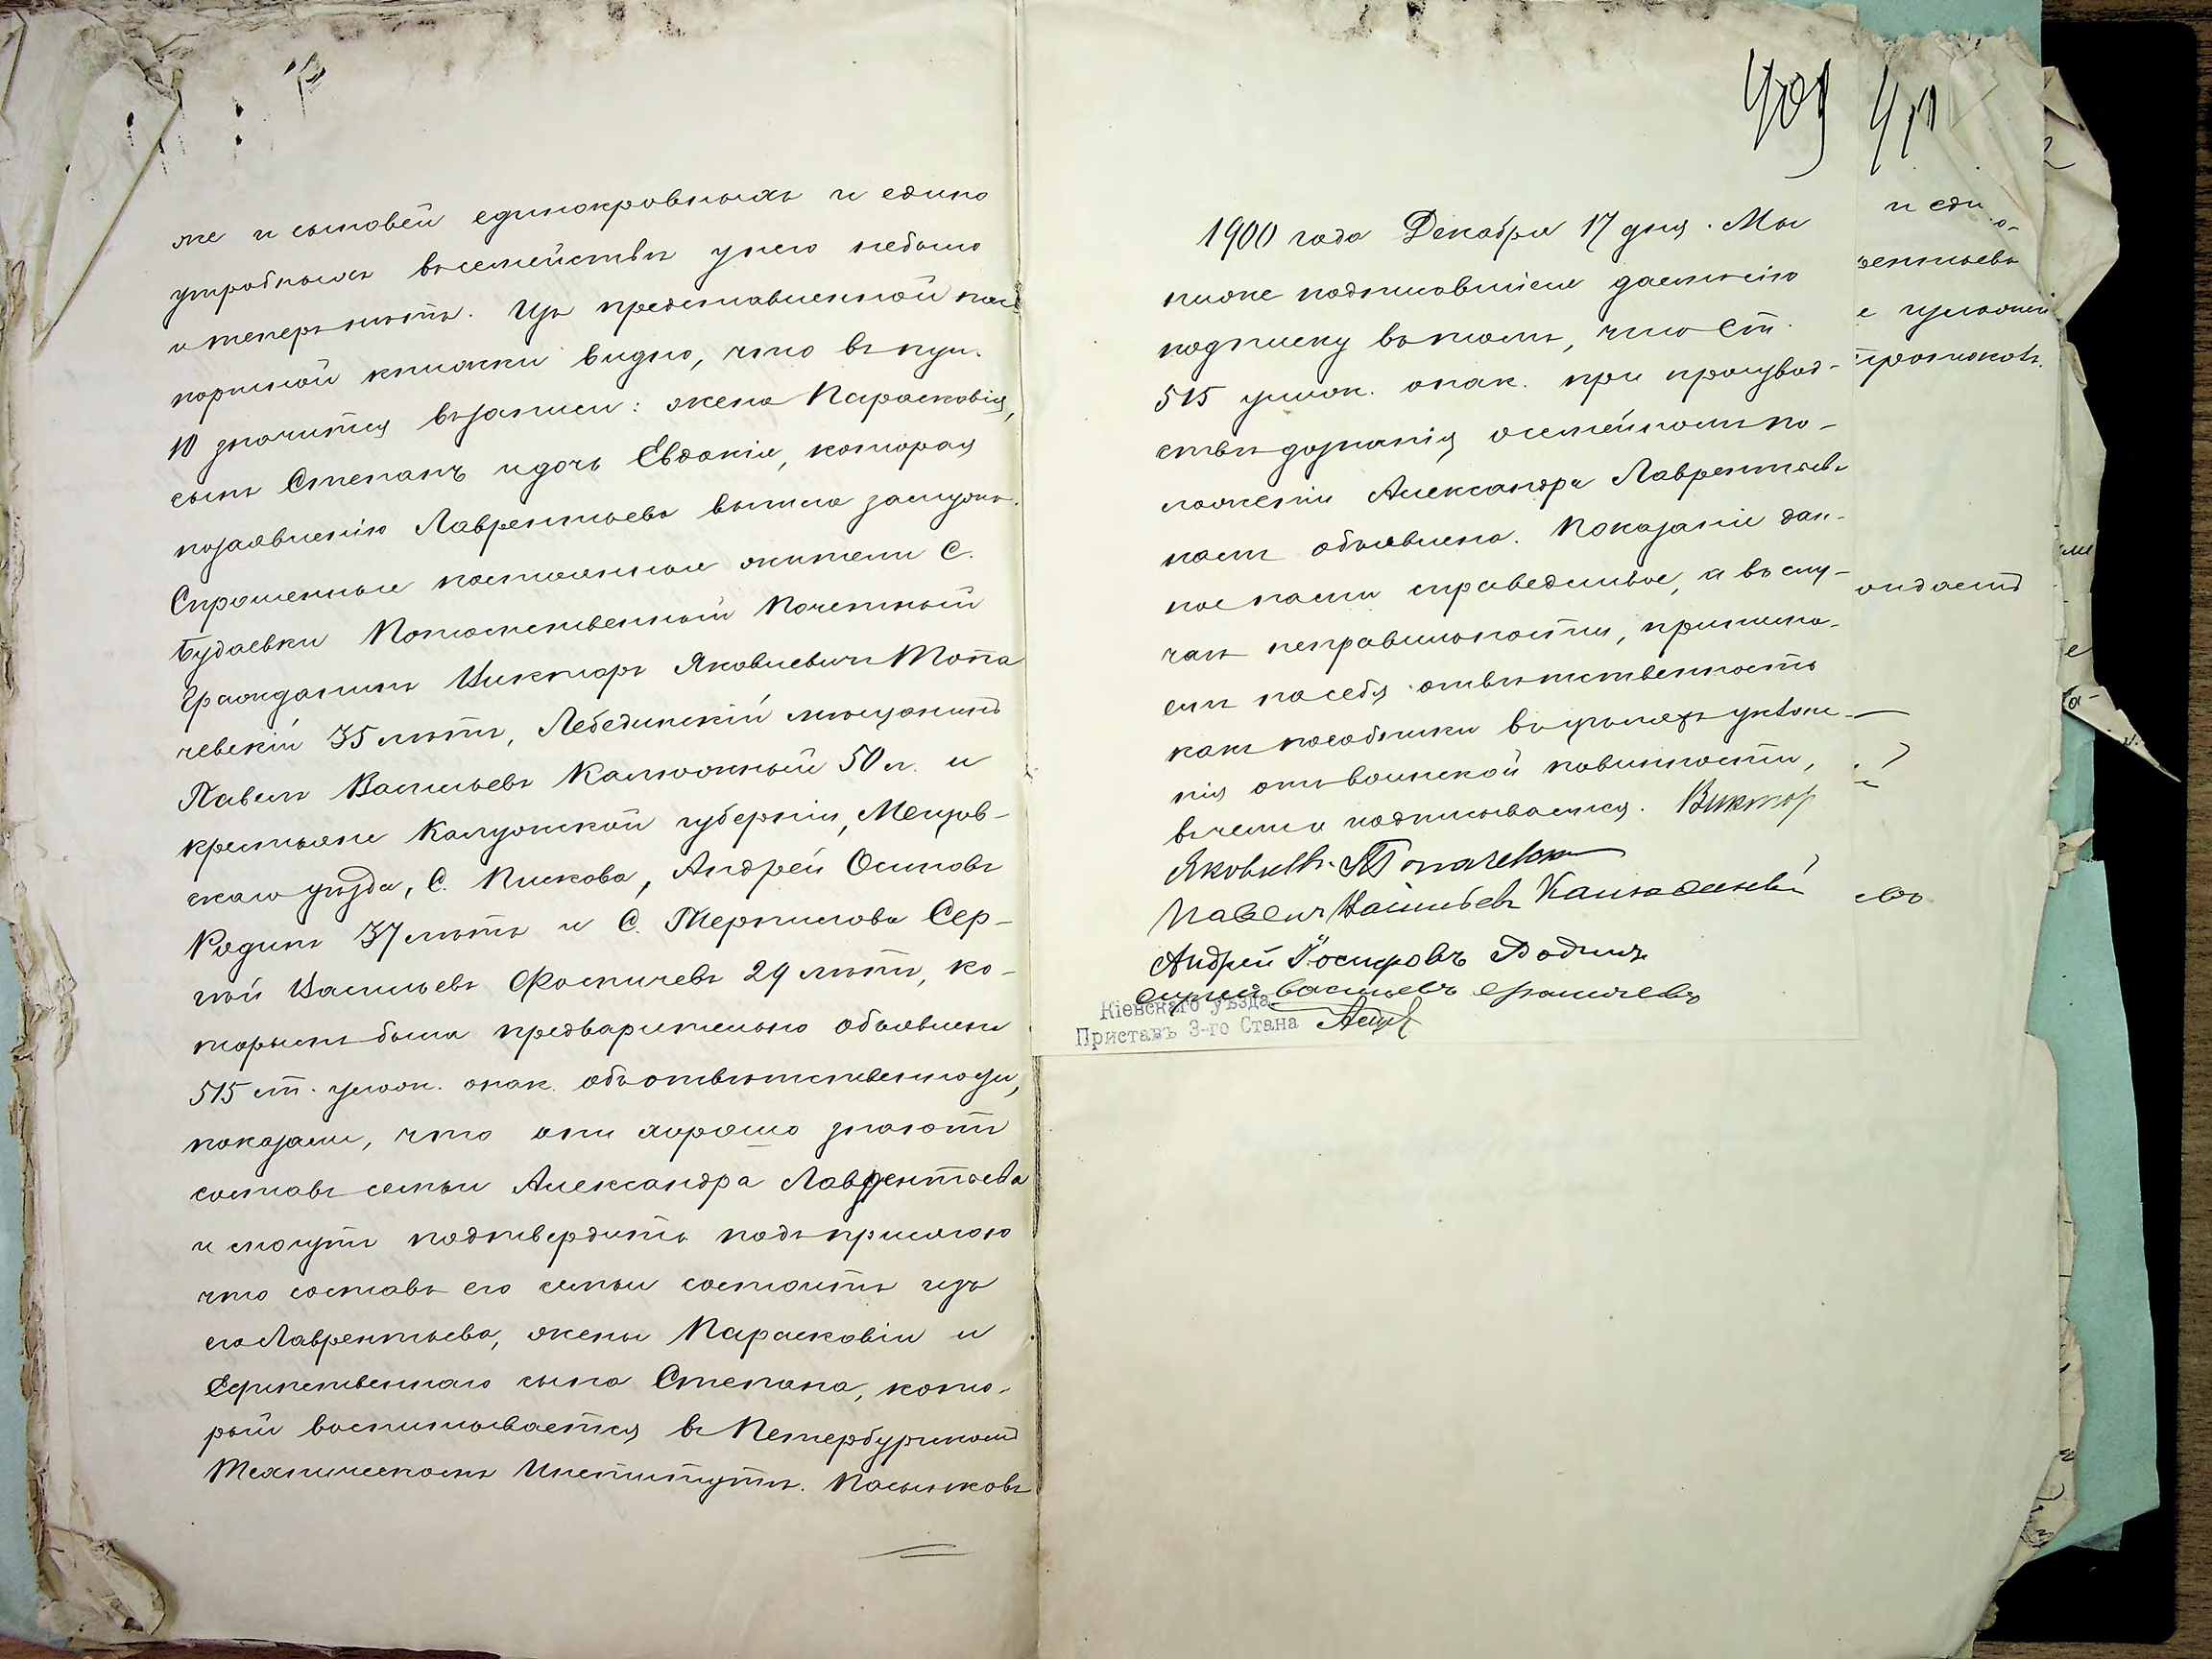 же и сыновей единокровныхъ и едино
утробныхъ въ семействѣ у него небыло
и теперь нѣтъ. Изъ представленной пас
портной книжки видно, что въ пун.
10 значится въ записи: жена Парасковія,
сынъ Степанъ и дочь Евдокія, которая
по заявленію Лаврентьева вышла замужъ.
Спрошенные постоянные жители С.
Будаевки Потомственный Почетный
Гражданинъ Викторъ Яковлевичъ Топа
чевскій 35 лѣтъ, Лебединскій мѣщанинъ
Павелъ Васильевъ Калюжный 50 л. и
крестьяне Калужской губерніи, Мещов-
скаго уѣзда, С. Пискова, Андрей Осиповъ
Родинъ 37 лѣтъ и С. Терпилова Сер-
гѣй Васильевъ Фомичевъ 29 лѣтъ, ко-
торымъ была предварительно объявлена
515 ст. улож. о нак. объ отвѣтственности,
показали, что они хорошо знаютъ
составъ семьи Александра Лаврентьева
и могутъ подтвердить подъ присягою
что составъ его семьи состоитъ изъ
его Лаврентьева, жены Парасковіи и
Единственнаго сына Степана, кото-
рый воспитывается въ Петербургскомъ
Техническомъ Институтѣ. Пасынковъ
409
1900 года Декабря 17 дня. Мы
ниже подписавшіеся даемъ сію
подписку въ томъ, что Ст.
515 улож. о нак. при производ-
ствѣ дознанія о семейномъ по-
ложеніи Александра Лаврентьева
намъ объявлена. Показаніе дан-
ное нами справедливое, а въ слу-
чаѣ неправильности, принима-
емъ на себя отвѣтственность
какъ пособники въ уклоне-
нія отъ воинской повинности,
въ чемъ и подписываемся. Виктор
Яковлев. Топачевски
Павелъ Васильевъ Калюжный
Андрей Іосиповъ Родинъ
Сергей Васильевъ Фомичевъ
Кіевскаго уѣзда
Приставъ 3-го Стана
411
и еди
рентьевъ